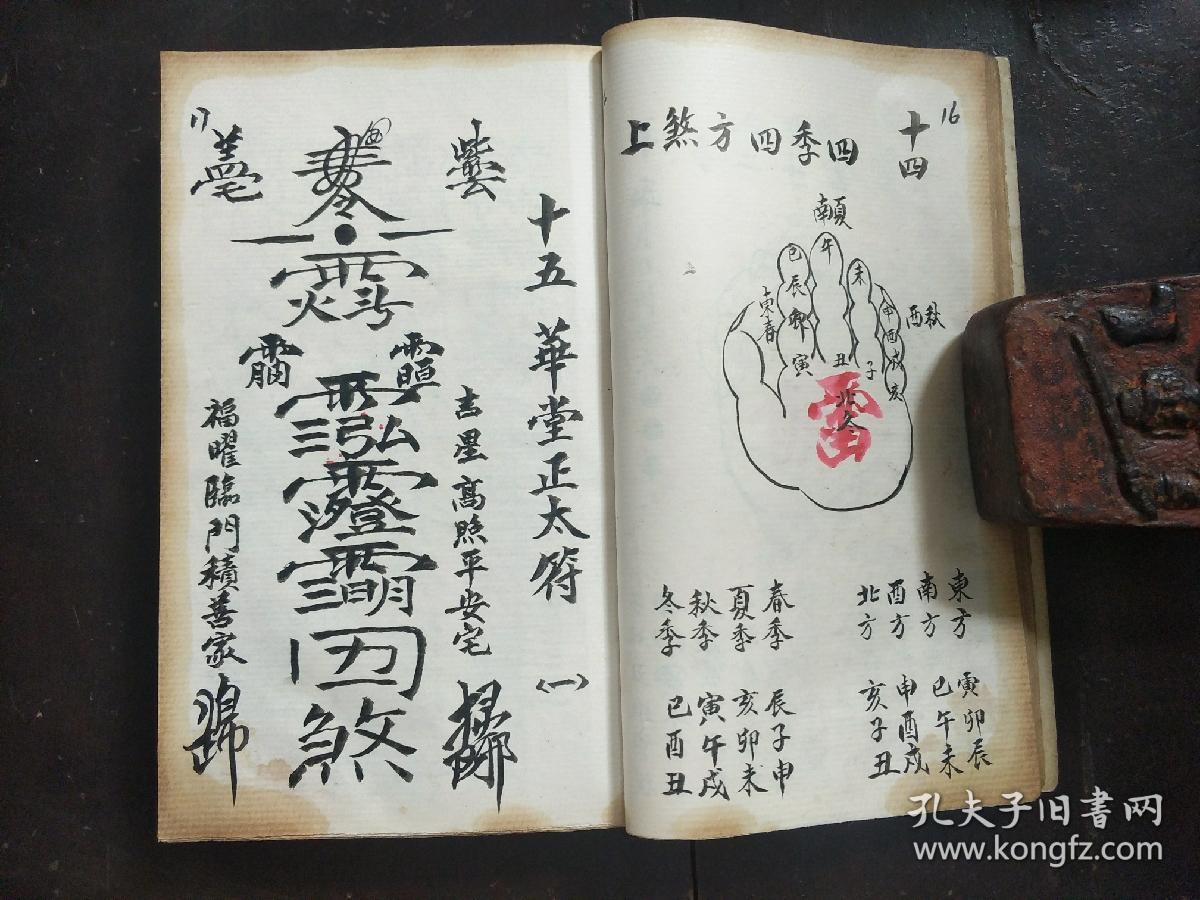 16
十四
四季四方煞上
南夏
午
巳辰卯寅
未
寅春
申酉戌亥
秋西
丑
子
北冬
東方 寅卯辰
南方 巳午未
西方 申酉戌
北方 亥子丑
春季 辰子申
夏季 亥卯未
秋季 寅午戌
冬季 巳酉丑
17
十五 華堂正太符 〈一〉
吉星高照平安宅
福曜臨門積善家
煞
孔夫子旧書网
www.kongfz.com